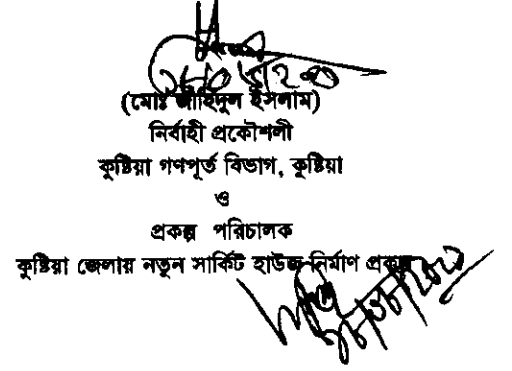 (মোঃ জাহিদুল ইসলাম)
নির্বাহী প্রকৌশলী
কুষ্টিয়া গণপূর্ত বিভাগ, কুষ্টিয়া
ও
প্রকল্প পরিচালক
কুষ্টিয়া জেলায় নতুন সার্কিট হাউজ নির্মাণ প্রকল্প